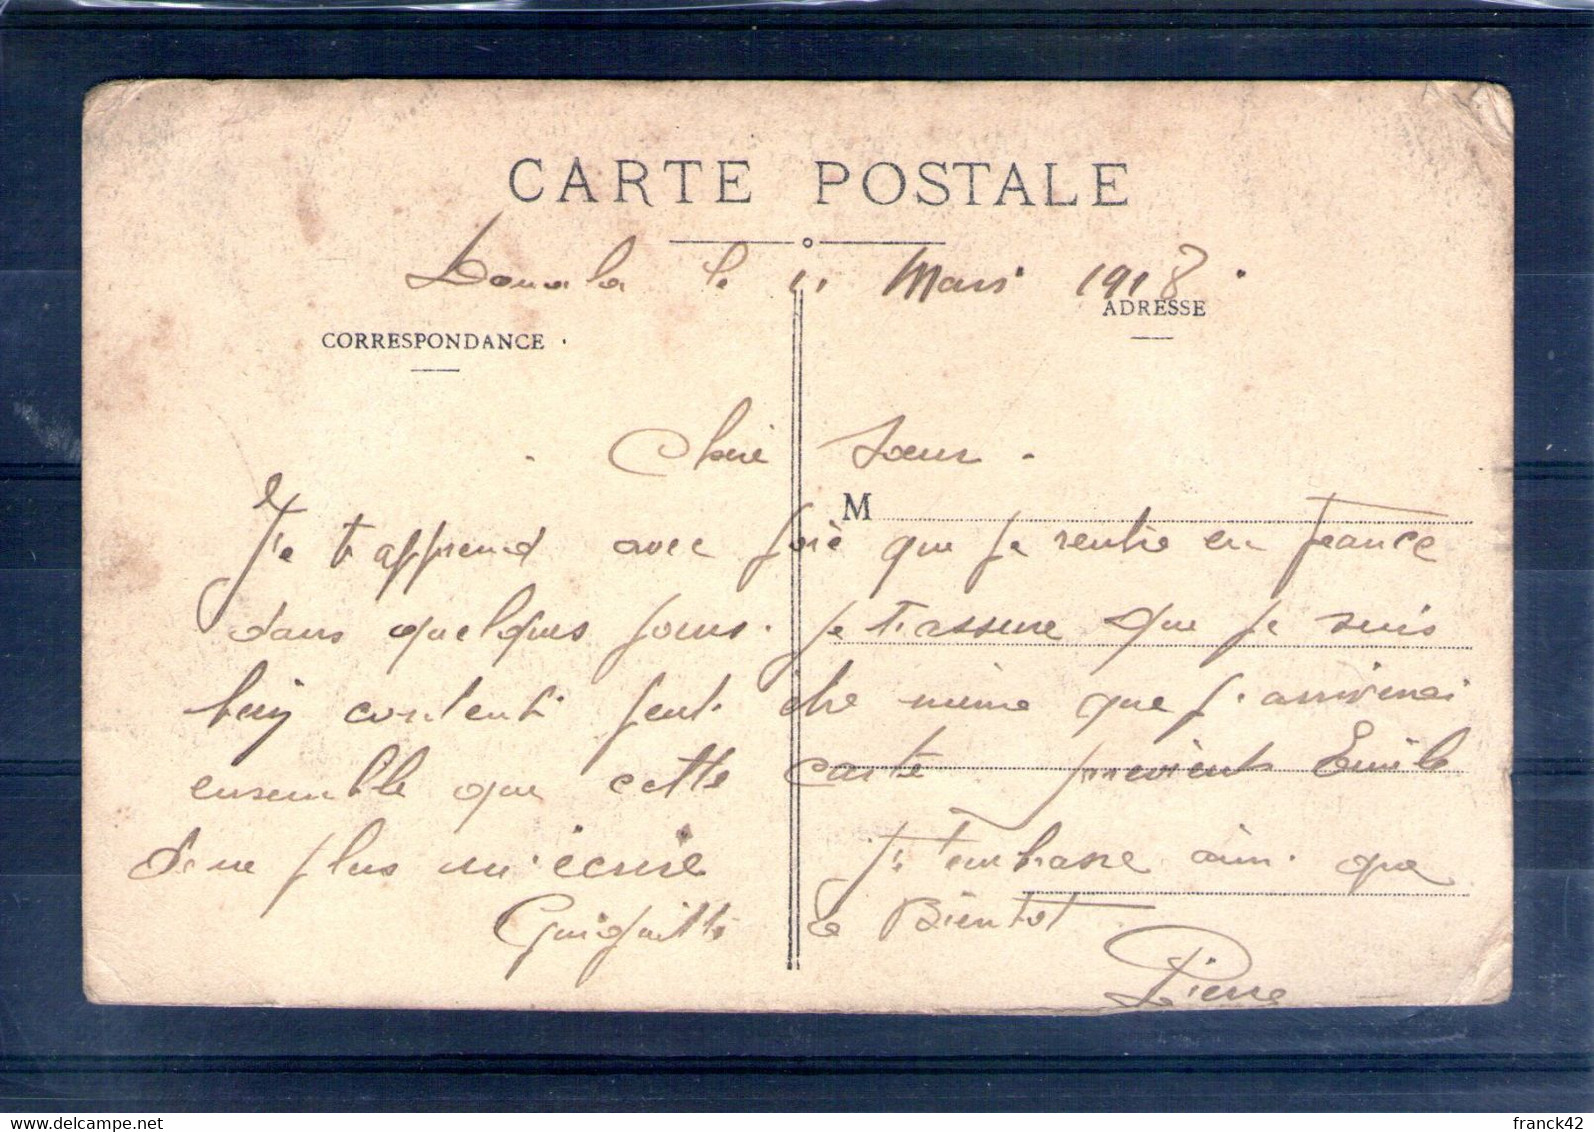 CARTE POSTALE
Douala le 11 Mars 1918.
CORRESPONDANCE
ADRESSE
Chère Soeur.
M
Je t'apprend avec joie que je rentre en France
dans quelques jours. je t'assure que je suis
bien content. peut être même que j'arriverai
ensemble que cette carte. previent Emile
de ne plus m'écrire
Je t'embrasse ainsi que
à Bientot
Pierre
franck42